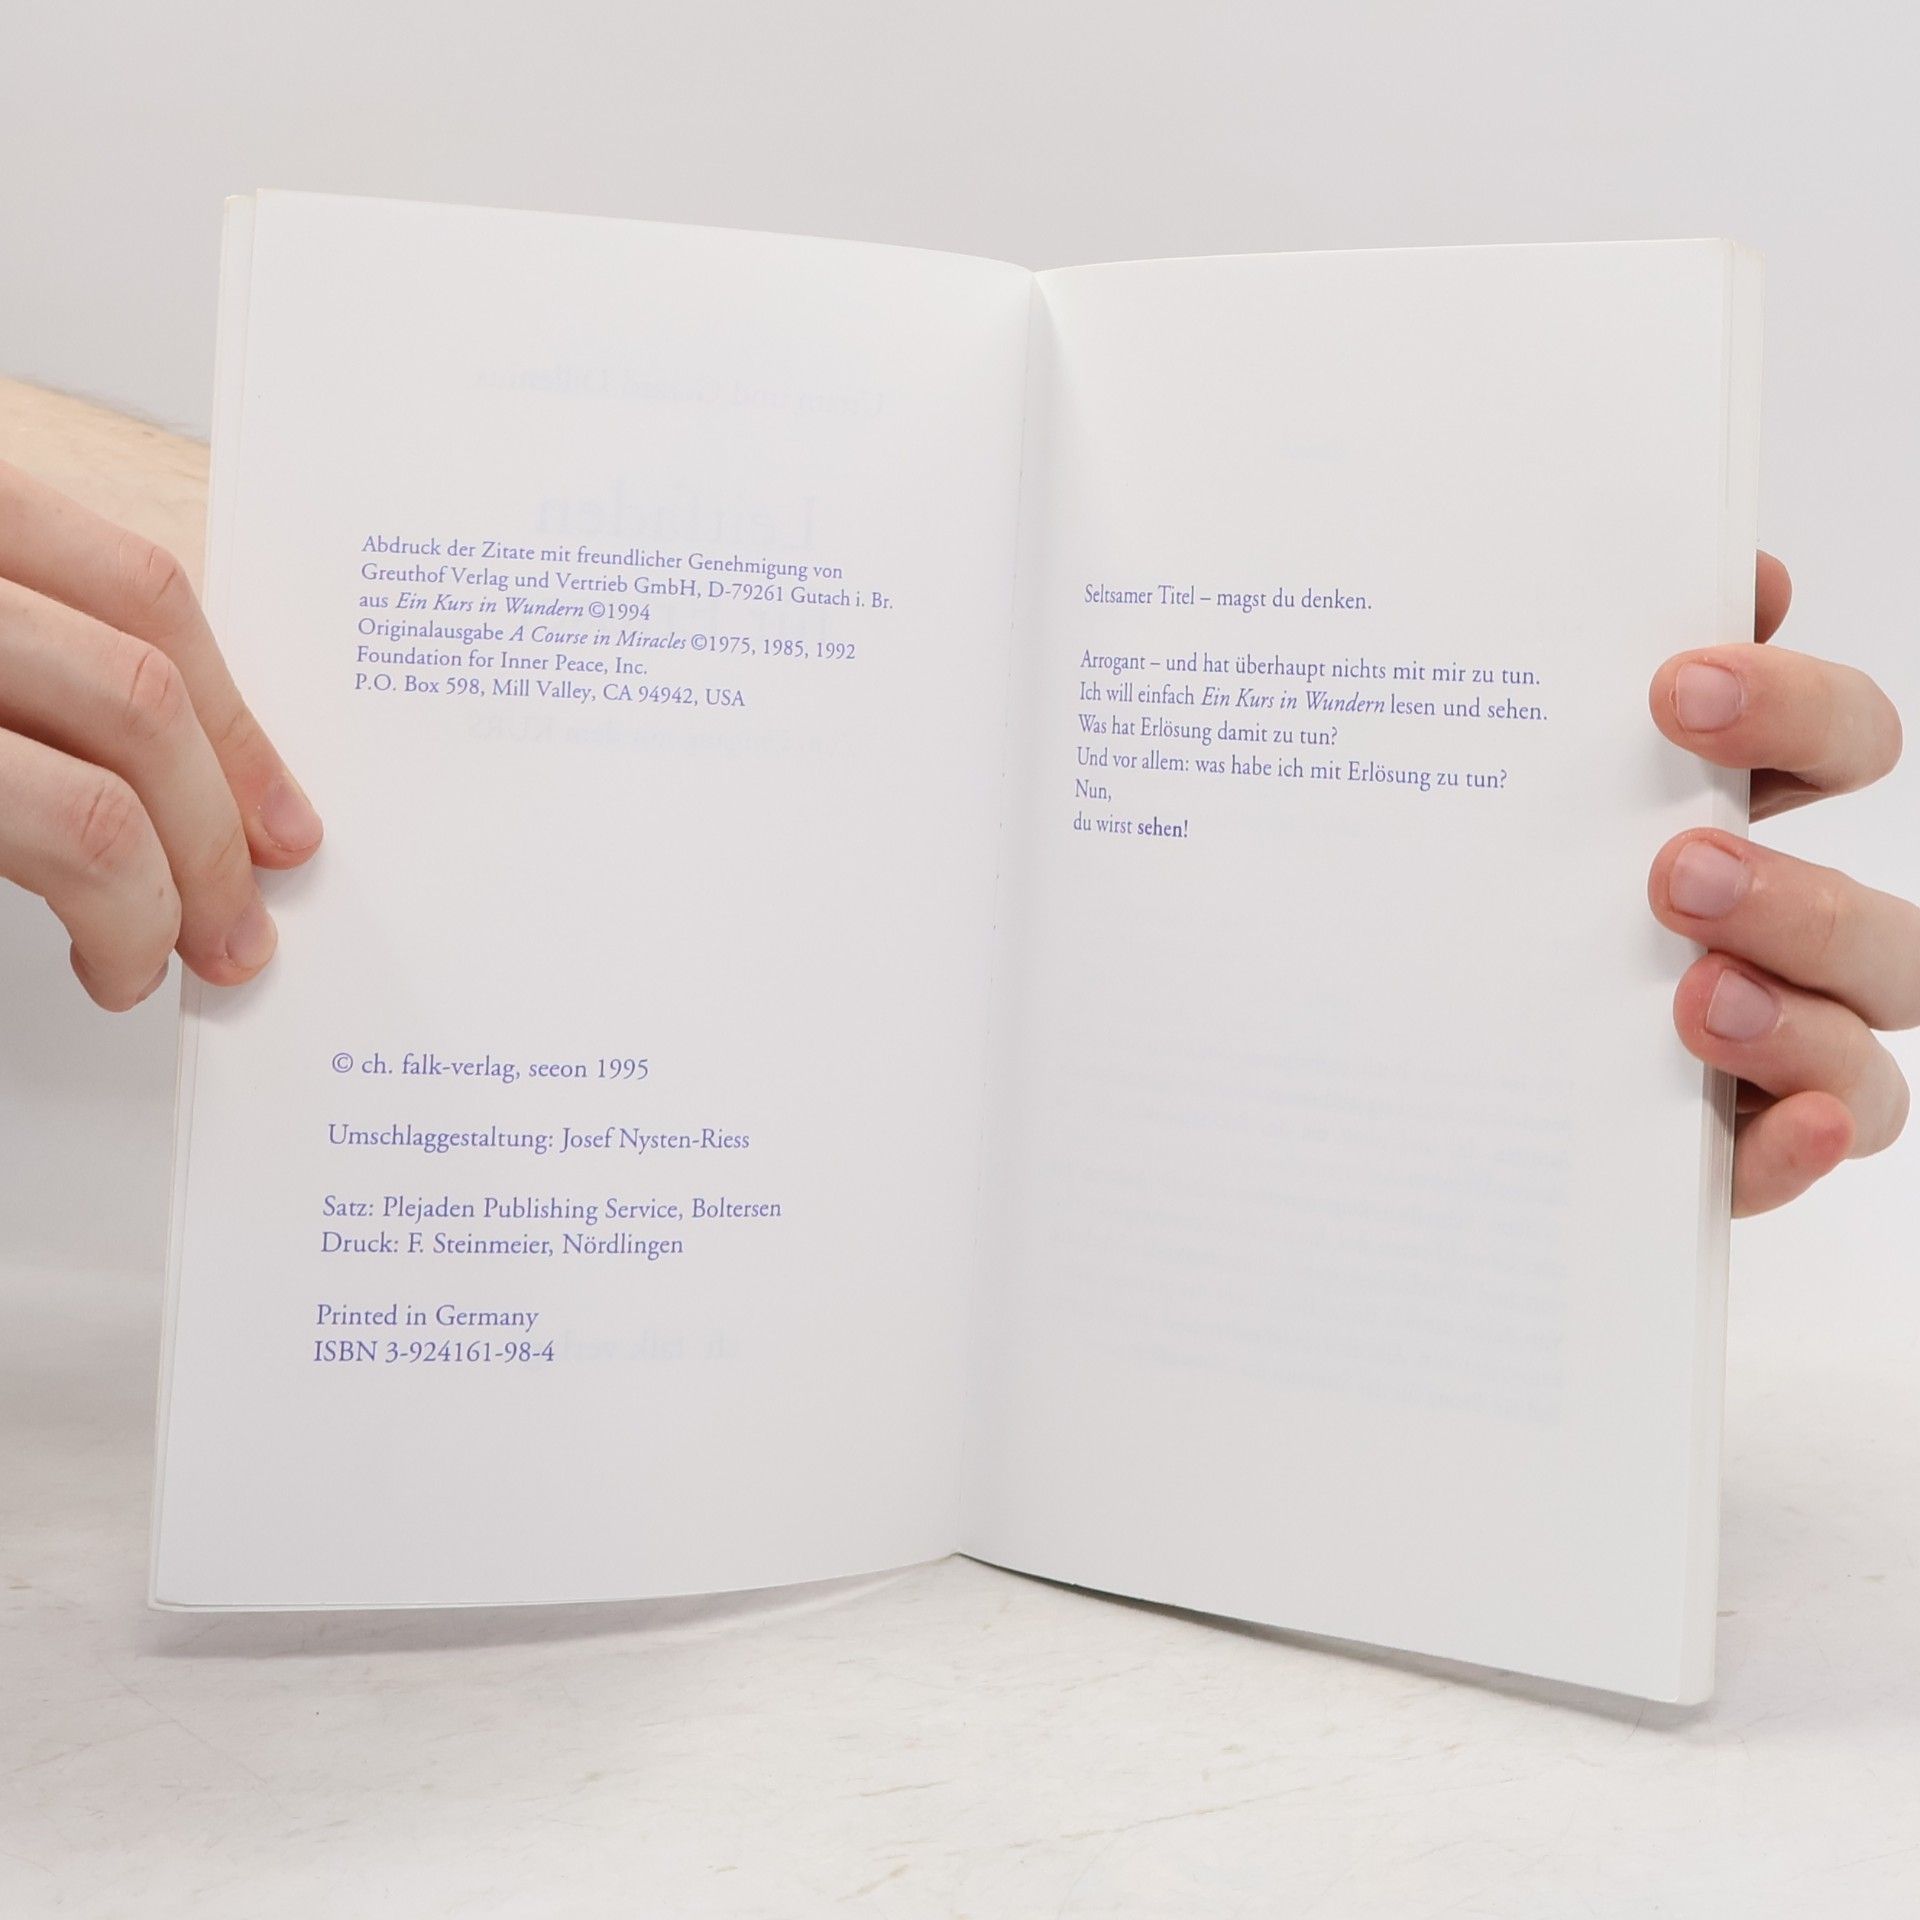 Abdruck der Zitate mit freundlicher Genehmigung von
Greuthof Verlag und Vertrieb GmbH, D-79261 Gutach i. Br.
aus Ein Kurs in Wundern ©1994
Originalausgabe A Course in Miracles ©1975, 1985, 1992
Foundation for Inner Peace, Inc.
P.O. Box 598, Mill Valley, CA 94942, USA
© ch. falk-verlag, seeon 1995
Umschlaggestaltung: Josef Nysten-Riess
Satz: Plejaden Publishing Service, Boltersen
Druck: F. Steinmeier, Nördlingen
Printed in Germany
ISBN 3-924161-98-4
Seltsamer Titel – magst du denken.
Arrogant – und hat überhaupt nichts mit mir zu tun.
Ich will einfach Ein Kurs in Wundern lesen und sehen.
Was hat Erlösung damit zu tun?
Und vor allem: was habe ich mit Erlösung zu tun?
Nun,
du wirst sehen!